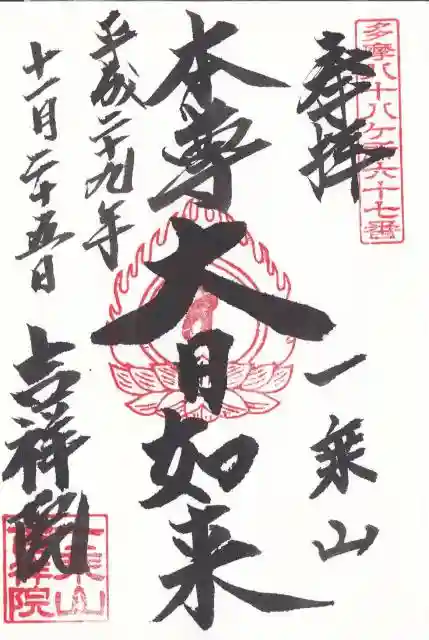 多摩八十八ケ所六十七番
奉拝
一乗山
本尊
大日如来
平成二十九年
十一月二十五日
吉祥院
一乗山
吉祥院